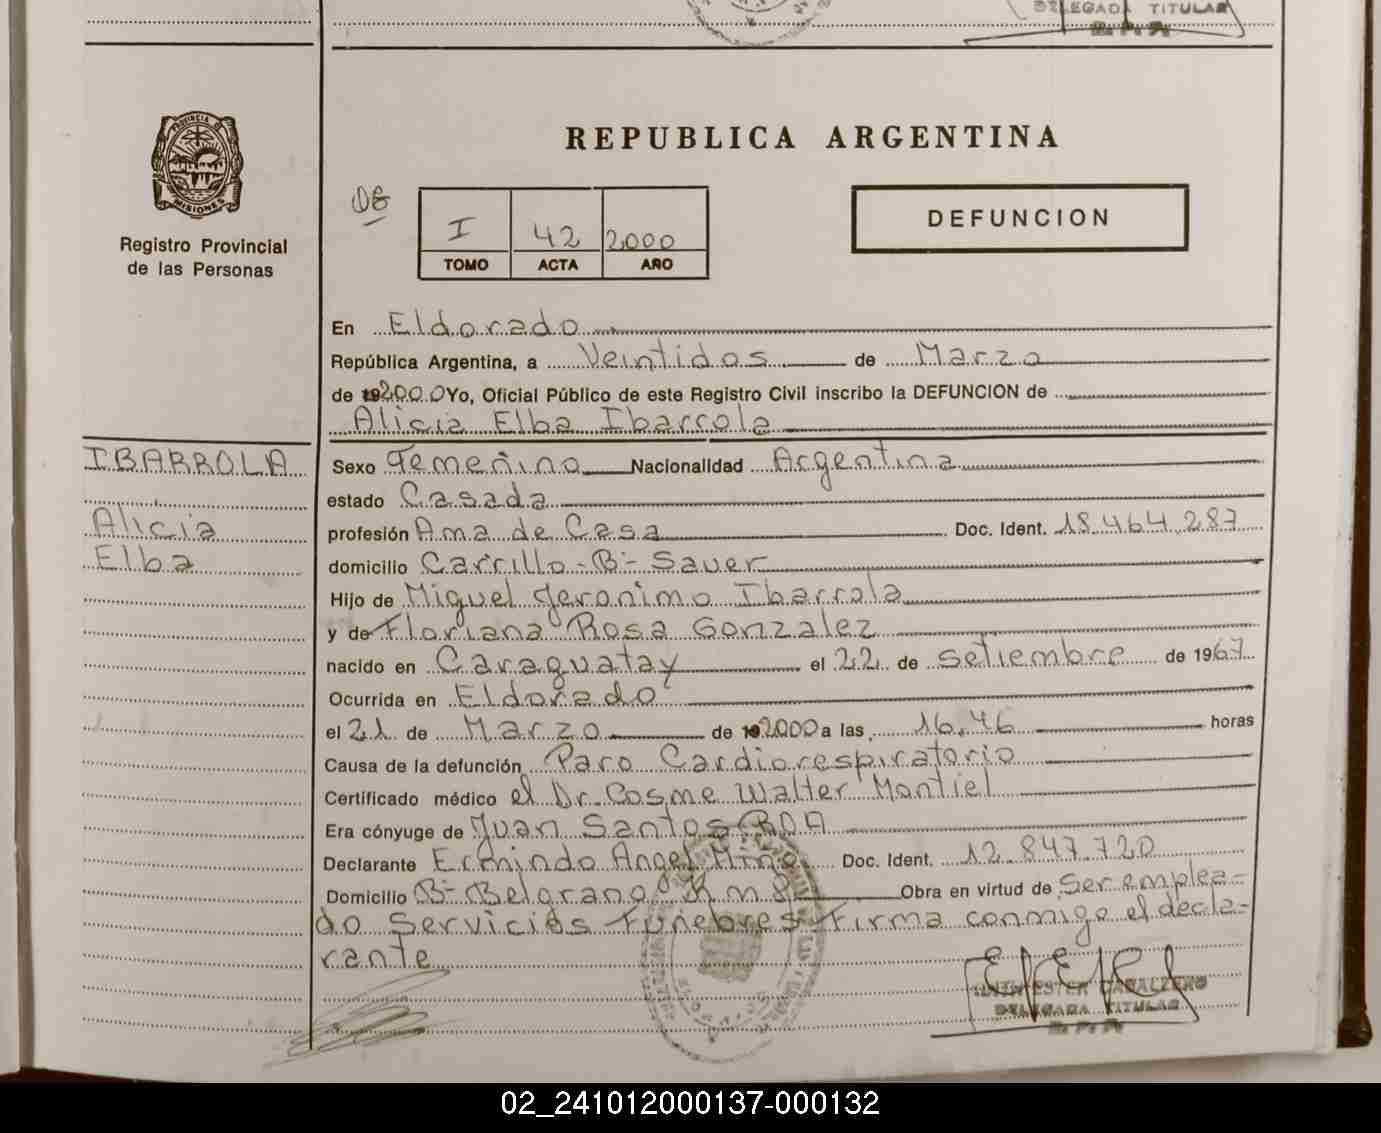 DELEGADA TITULAR
R. P. P.
PROVINCIA DE
MISIONES
Registro Provincial
de las Personas
REPUBLICA ARGENTINA
DG
I 42 2000
TOMO ACTA AÑO
DEFUNCION
En Eldorado
República Argentina, a Veintidos de Marzo
de 192000 Yo, Oficial Público de este Registro Civil inscribo la DEFUNCION de
Alicia Elba Ibarrola
IBARROLA
Alicia
Elba
Sexo Femenino Nacionalidad Argentina
estado Casada
profesión Ama de Casa Doc. Ident. 18.464.287
domicilio Carrillo - B- Sauer
Hijo de Miguel Jeronimo Ibarrola
y de Floriana Rosa Gonzalez
nacido en Caraguatay el 22 de setiembre de 1967
Ocurrida en Eldorado
el 21 de Marzo de 192000 a las 16.46 horas
Causa de la defunción Paro Cardiorespiratorio
Certificado médico el Dr. Cosme Walter Montiel
Era cónyuge de Juan Santos ROA
Declarante Ermindo Angel Miño Doc. Ident. 12.847.720
Domicilio B- Belgrano Km 8 Obra en virtud de Ser emplea-
do Servicios Funebres Firma conmigo el decla-
rante
ESTER CABALLERO
DELEGADA TITULAR
R. P. P.
02_241012000137-000132